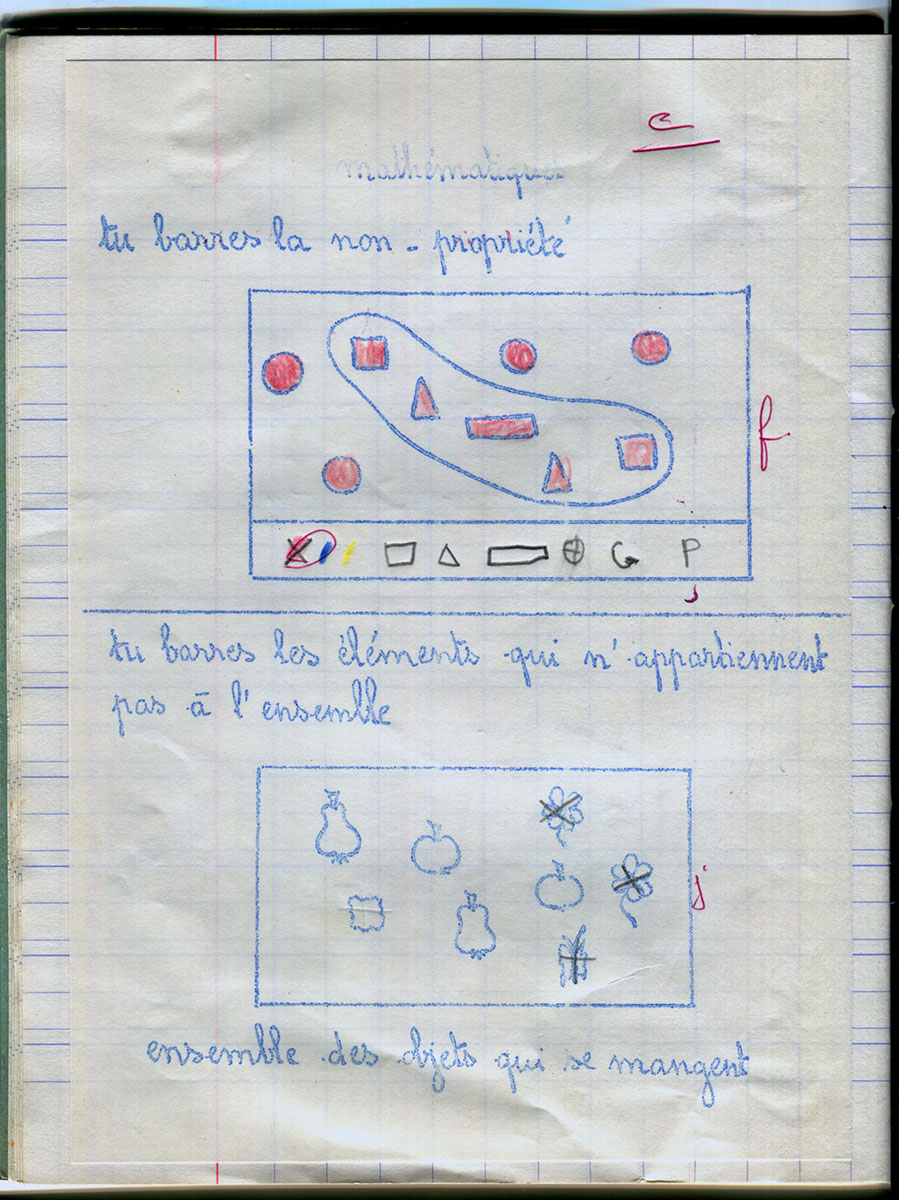 c
mathématiques
tu barres la non - propriété
f
G P
j
tu barres les éléments qui n'appartiennent
pas à l'ensemble
j
ensemble des objets qui se mangent